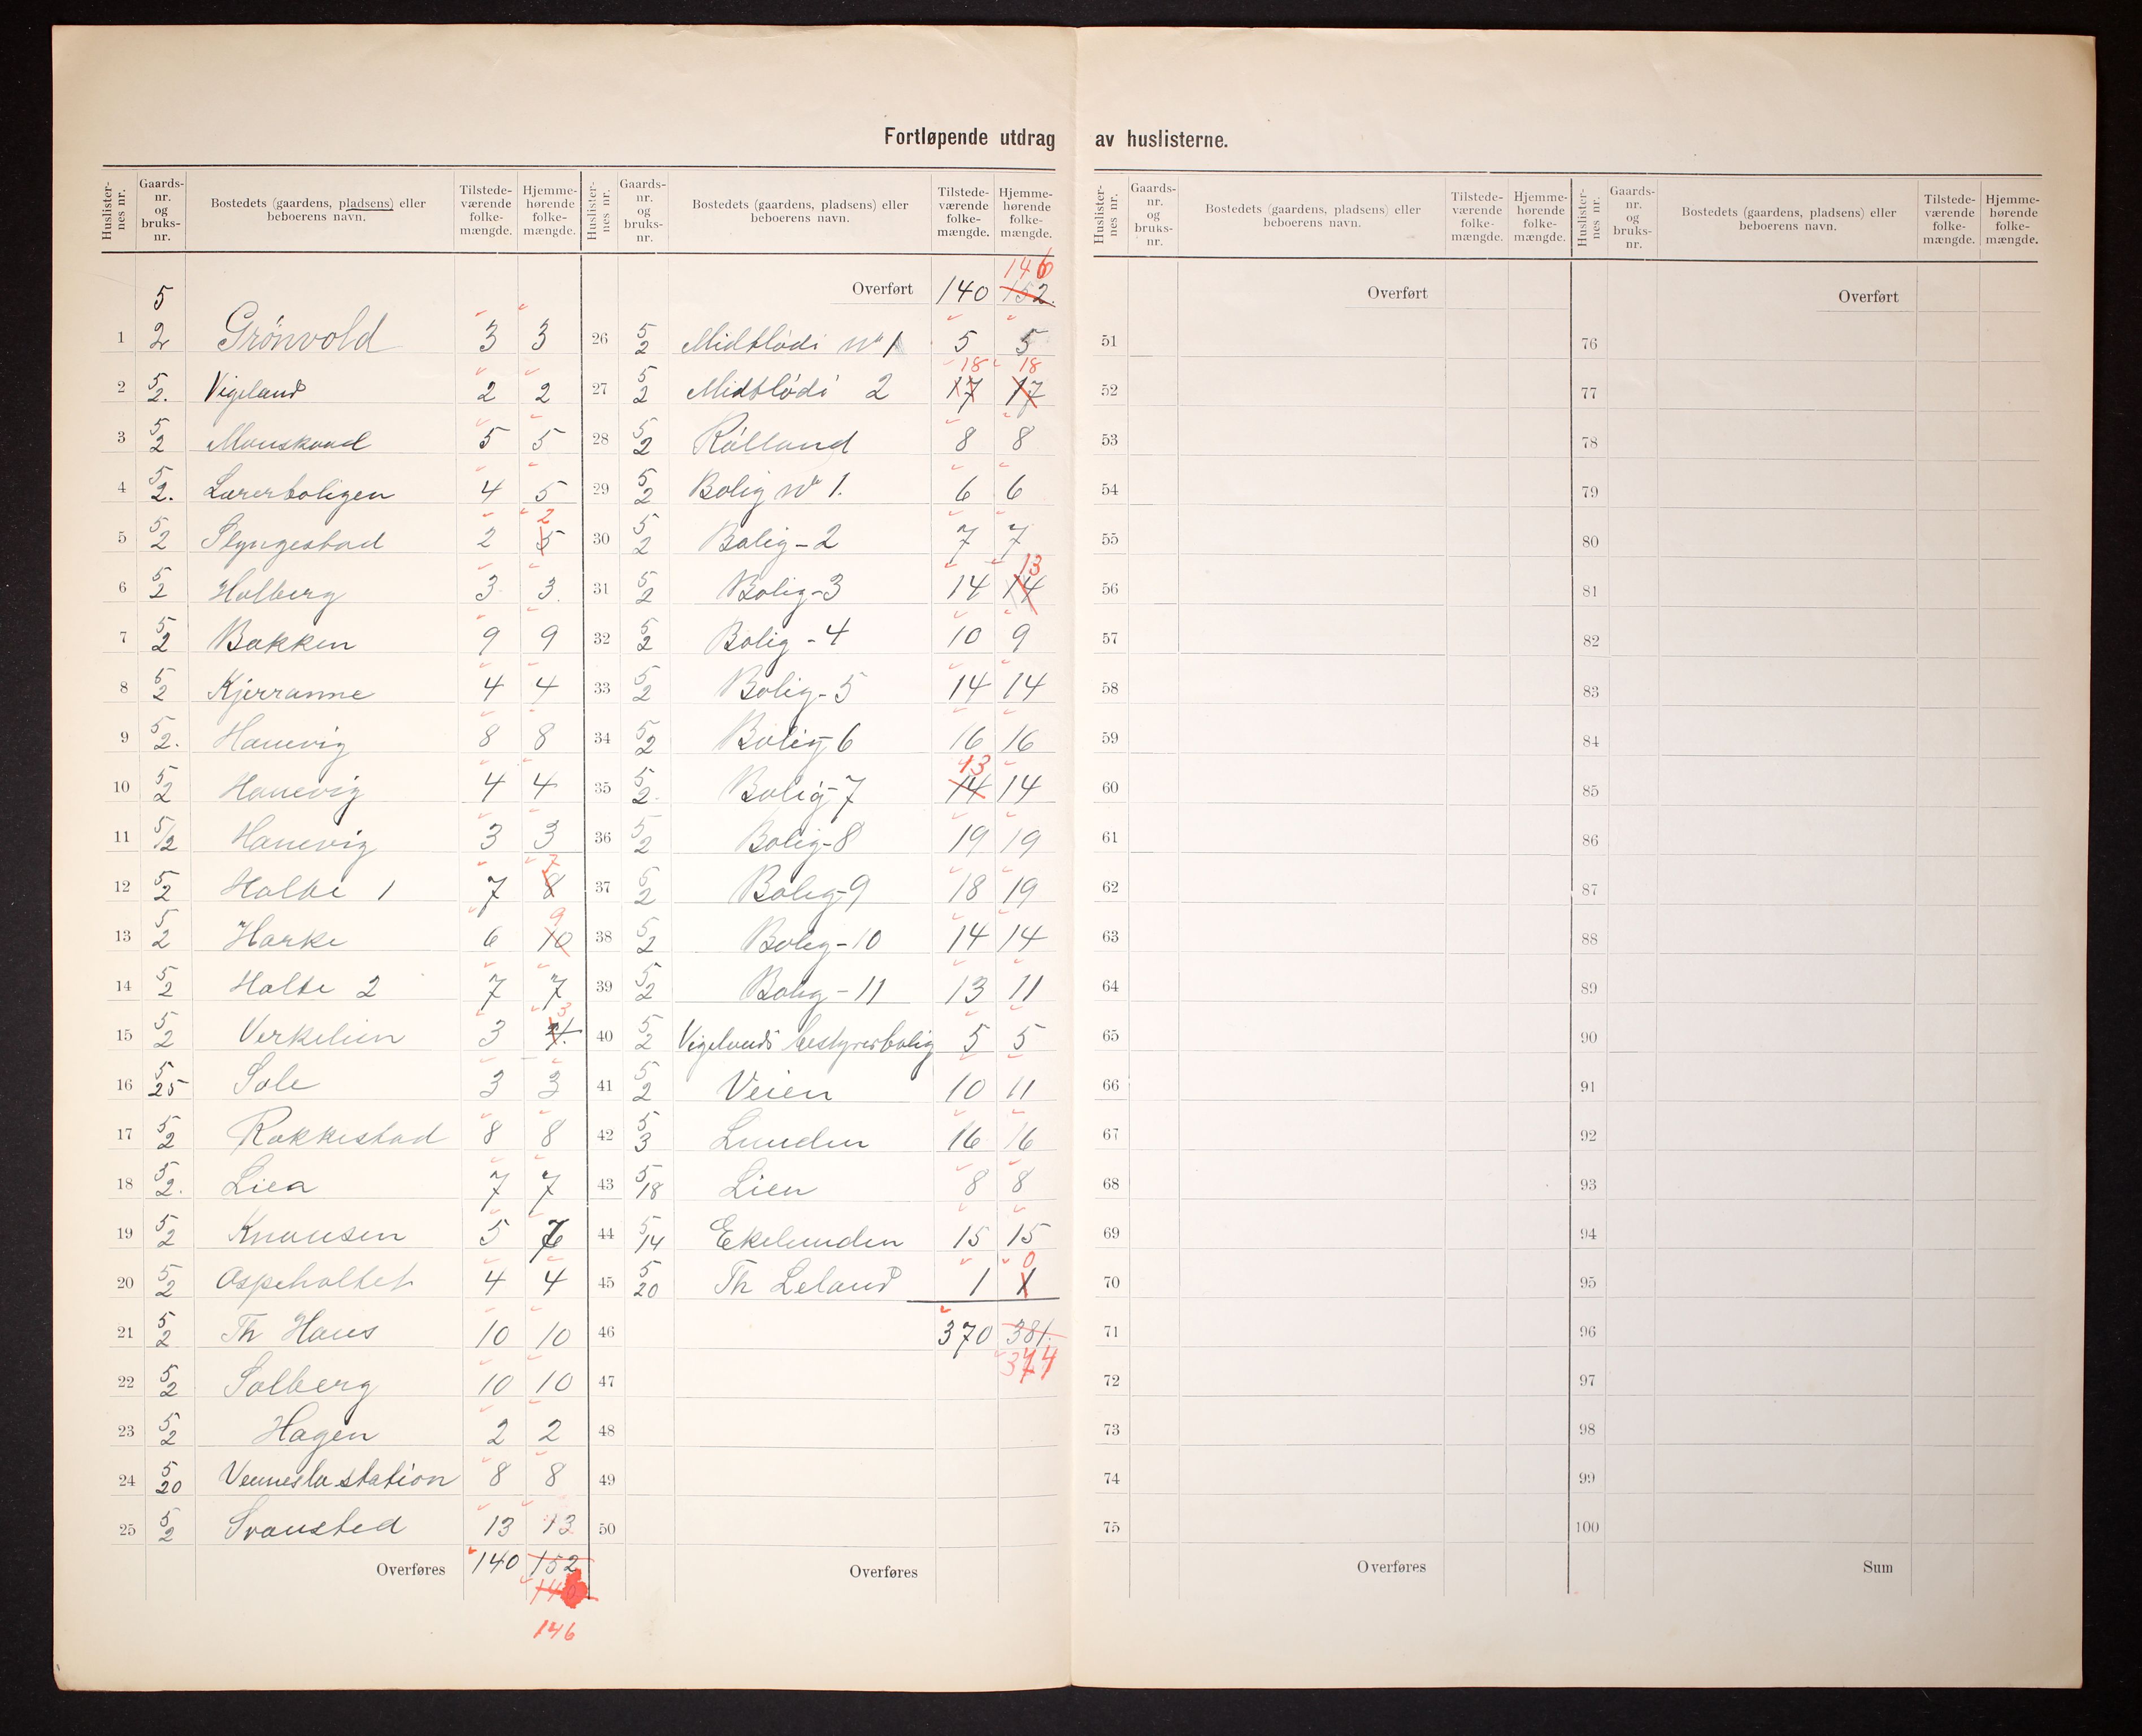 Fortløpende utdrag av huslisterne.
Huslister-nes nr. Gaards-nr. og bruks-nr. Bostedets (gaardens, pladsens) eller beboerens navn. Tilstede-værende folke-mængde. Hjemme-hørende folke-mængde.
1 5 2 Grönvold 3 3
2 5 2. Vigeland 2 2
3 5 2 5 5
4 5 2. Lærerboligen 4 5
5 5 2 Slyngestad 2 5 2
6 5 2 Holberg 3 3.
7 5 2 Bakken 9 9
8 5 2 Kjerranne 4 4
9 5 2. Hanevig 8 8
10 5 2 Hanevig 4 4
11 5/2 Hanevig 3 3
12 5 2 Holte 1 7 8 7
13 5 2 Harke 6 10 9
14 5 2 Holte 2 7 7
15 5 2 Verkelien 3 4. 3
16 5 25 Sole 3 3
17 5 2 Rakkestad 8 8
18 5 2. Liea 7 7
19 5 2 Knausen 5 7
20 5 2 Aspeholtet 4 4
21 5 2 Th Haus 10 10
22 5 2 Solberg 10 10
23 5 2 Hagen 2 2
24 5 20 Vennesla station 8 8
25 5 2 Svansted 13 13
Overføres 140 152
146
146
Huslister-nes nr. Gaards-nr. og bruks-nr. Bostedets (gaardens, pladsens) eller beboerens navn. Tilstede-værende folke-mængde. Hjemme-hørende folke-mængde.
Overført 140 152. 146
26 5 2 Midtlödi No 1 5 5
27 5 2 Midtlödi 2 17 18 17 18
28 5 2 Rålland 8 8
29 5 2 Bolig No 1. 6 6
30 5 2 Bolig - 2 7 7
31 5 2 Bolig - 3 14 14 13
32 5 2 Bolig - 4 10 9
33 5 2 Bolig - 5 14 14
34 5 2 Bolig - 6 16 16
35 5 2. Bolig - 7 14 13 14
36 5 2 Bolig - 8 19 19
37 5 2 Bolig - 9 18 19
38 5 2 Bolig - 10 14 14
39 5 2 Bolig - 11 13 11
40 5 2 Vigelands bestyrerbolig 5 5
41 5 2 Veien 10 11
42 5 3 Lunden 16 16
43 5/18 Lien 8 8
44 5/14 Ekelunden 15 15
45 5 20 Th Leland 1 1 0
46 370 381.
374
47
48
49
50
Overføres
Huslister-nes nr. Gaards-nr. og bruks-nr. Bostedets (gaardens, pladsens) eller beboerens navn. Tilstede-værende folke-mængde. Hjemme-hørende folke-mængde.
Overført
51
52
53
54
55
56
57
58
59
60
61
62
63
64
65
66
67
68
69
70
71
72
73
74
75
Overføres
Huslister-nes nr. Gaards-nr. og bruks-nr. Bostedets (gaardens, pladsens) eller beboerens navn. Tilstede-værende folke-mængde. Hjemme-hørende folke-mængde.
Overført
76
77
78
79
80
81
82
83
84
85
86
87
88
89
90
91
92
93
94
95
96
97
98
99
100
Sum